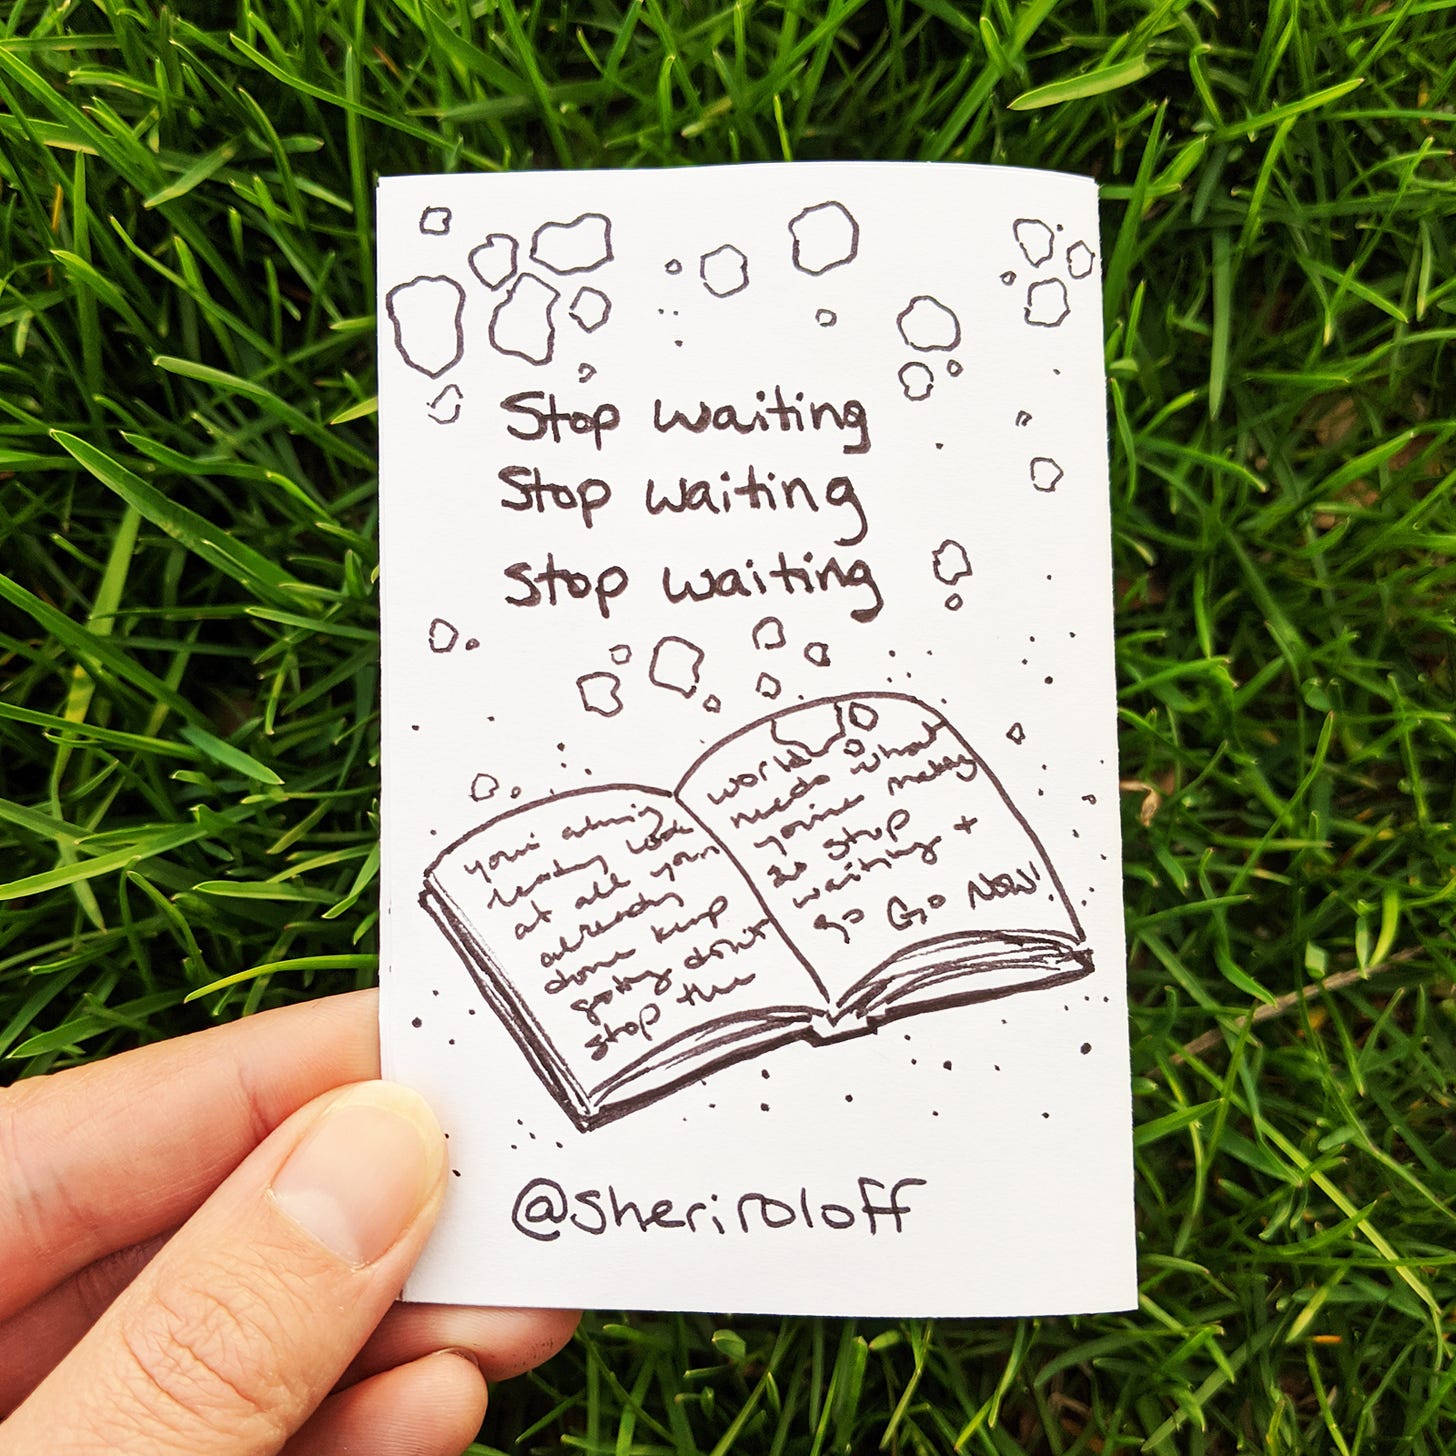 Stop waiting
Stop waiting
Stop waiting
your
look
at all your
already
done keep
going don't
stop the
world
needs what
you're making
so stop
waiting +
go Go Now!
@sheriroloff